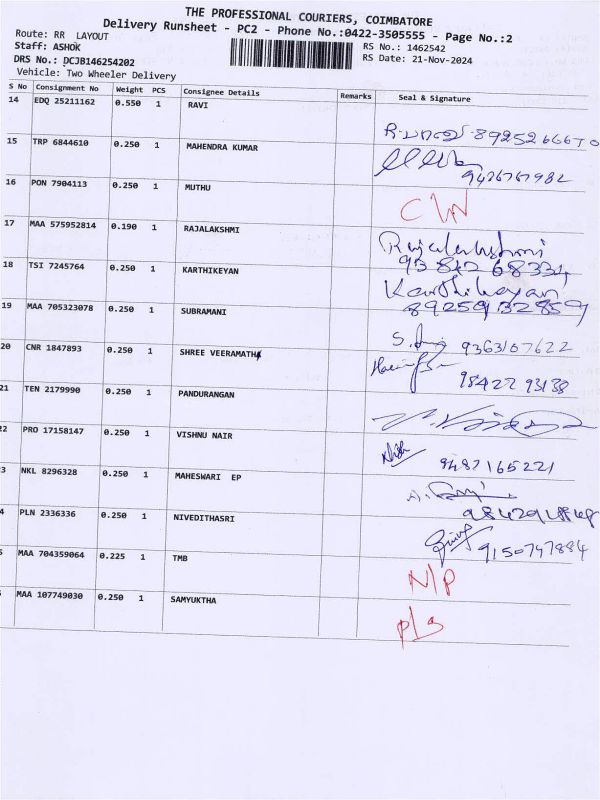 THE PROFESSIONAL COURIERS, COIMBATORE
Delivery Runsheet - PC2 - Phone No.:0422-3505555 - Page No.:2
Route: RR LAYOUT
Staff: ASHOK
RS No.: 1462542
DRS No.: DCJB146254202
RS Date: 21-Nov-2024
Vehicle: Two Wheeler Delivery
S No Consignment No Weight PCS Consignee Details Remarks Seal & Signature
14 EDQ 25211162 0.550 1 RAVI
15 TRP 6844610 0.250 1 MAHENDRA KUMAR
16 PON 7904113 0.250 1 MUTHU
17 MAA 575952814 0.190 1 RAJALAKSHMI Rajalakshmi
18 TSI 7245764 0.250 1 KARTHIKEYAN Karthikeyan
8925932859
19 MAA 705323078 0.250 1 SUBRAMANI
9363107622
20 CNR 1847893 0.250 1 SHREE VEERAMATHA
98422 93138
21 TEN 2179990 0.250 1 PANDURANGAN
22 PRO 17158147 0.250 1 VISHNU NAIR
9487165221
3 NKL 8296328 0.250 1 MAHESWARI EP
4 PLN 2336336 0.250 1 NIVEDITHASRI
9150747884
5 MAA 704359064 0.225 1 TMB N/P
MAA 107749030 0.250 1 SAMYUKTHA